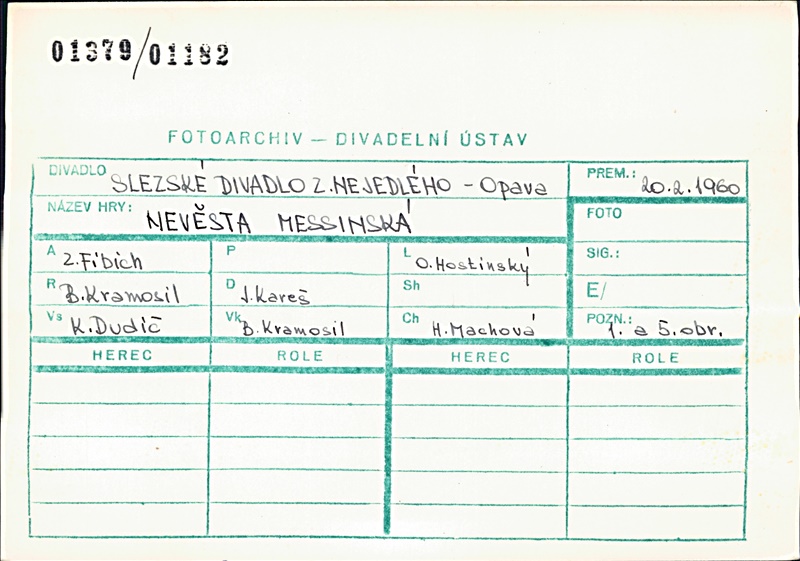 01379/01182
FOTOARCHIV – DIVADELNÍ ÚSTAV
DIVADLO SLEZSKÉ DIVADLO Z. NEJEDLÉHO - Opava PREM.: 20.2.1960
NÁZEV HRY: NEVĚSTA MESSINSKÁ FOTO
A Z. Fibich P L O. Hostinský SIG.:
R B. Kramosil D J. Kareš Sh E/
Vs K. Dudič Vk B. Kramosil Ch H. Machová POZN.: 1. a 5. obr.
HEREC ROLE HEREC ROLE